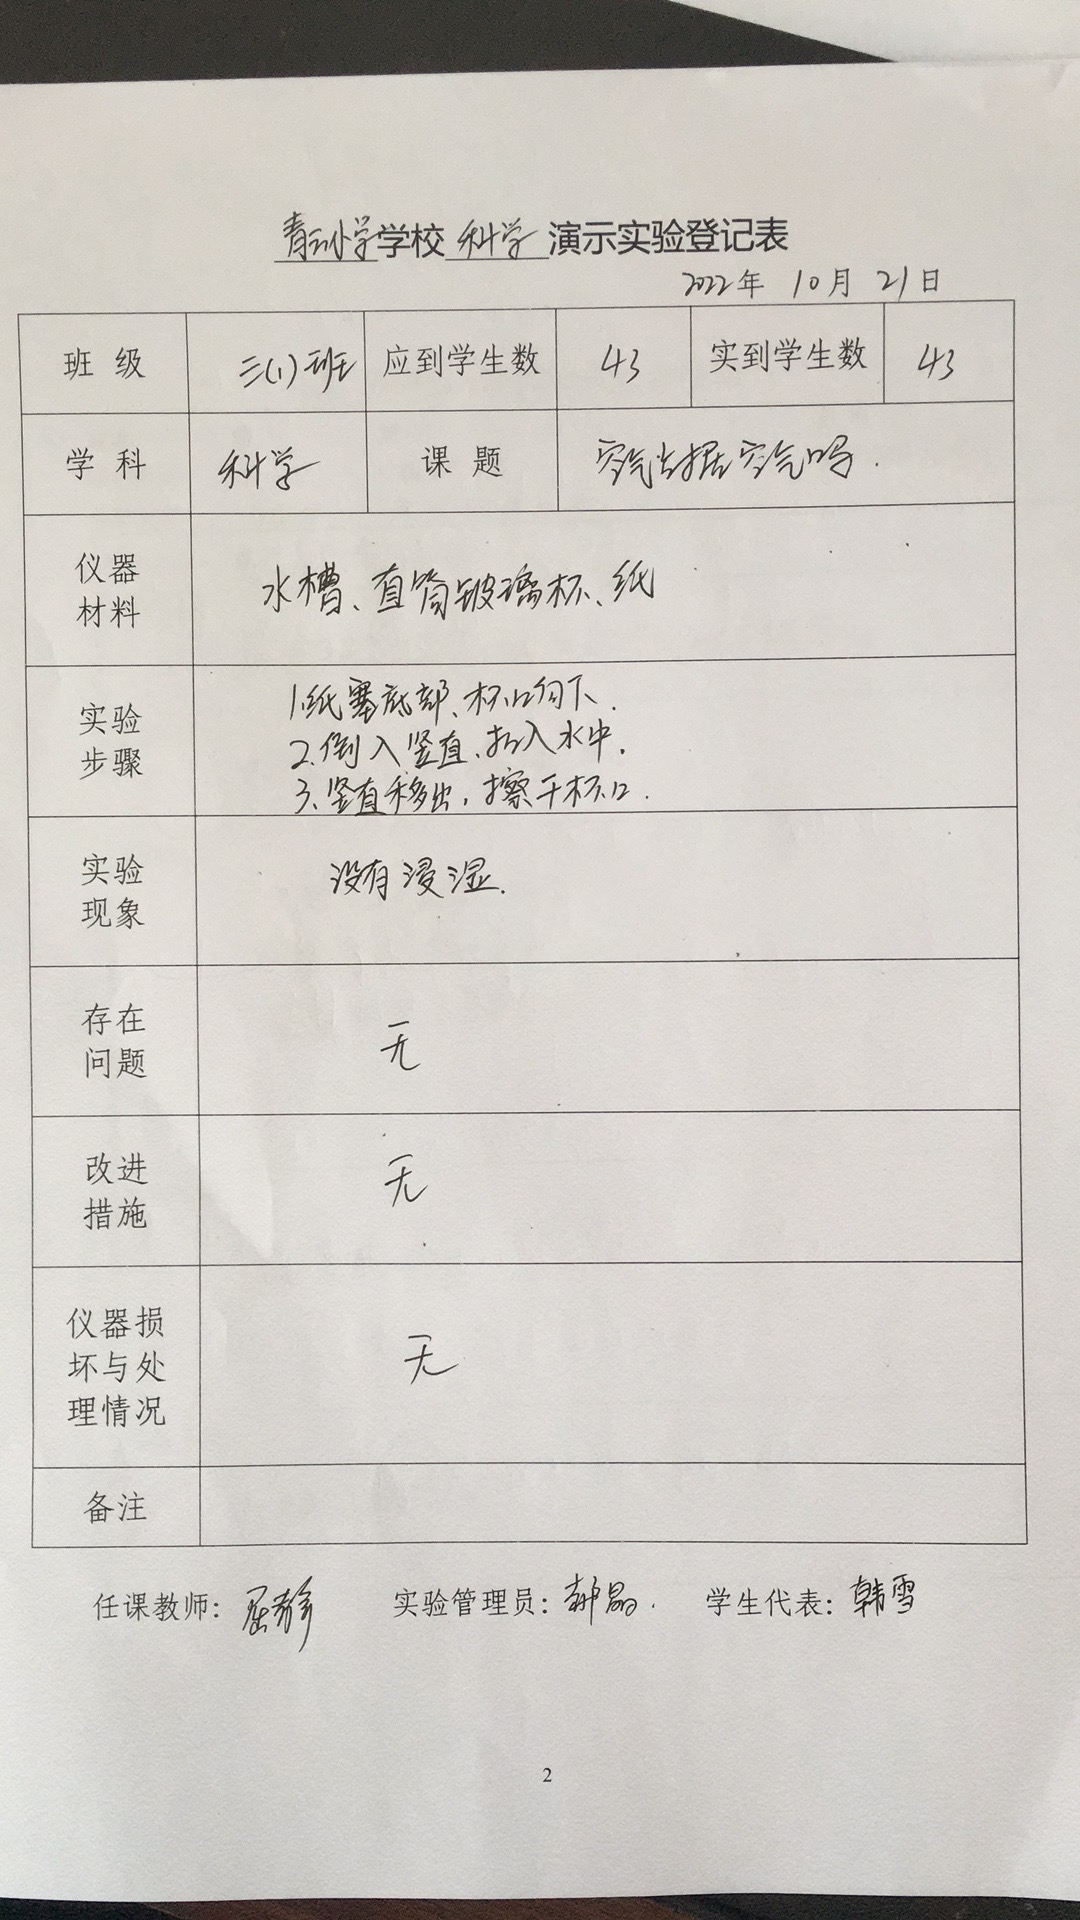 青云小学学校 科学 演示实验登记表
2022年 10月 21日
班 级 三(1)班 应到学生数 43 实到学生数 43
学 科 科学 课 题 空气占据空气吗.
仪器
材料
水槽、直筒玻璃杯、纸
实验
步骤
1.纸塞底部、杯口向下.
2.倒入竖直、扣入水中.
3.竖直移出,擦干杯口.
实验
现象
没有浸湿.
存在
问题
无
改进
措施
无
仪器损
坏与处
理情况
无
备注
任课教师: 屈静 实验管理员: 郝晶. 学生代表: 韩雪
2